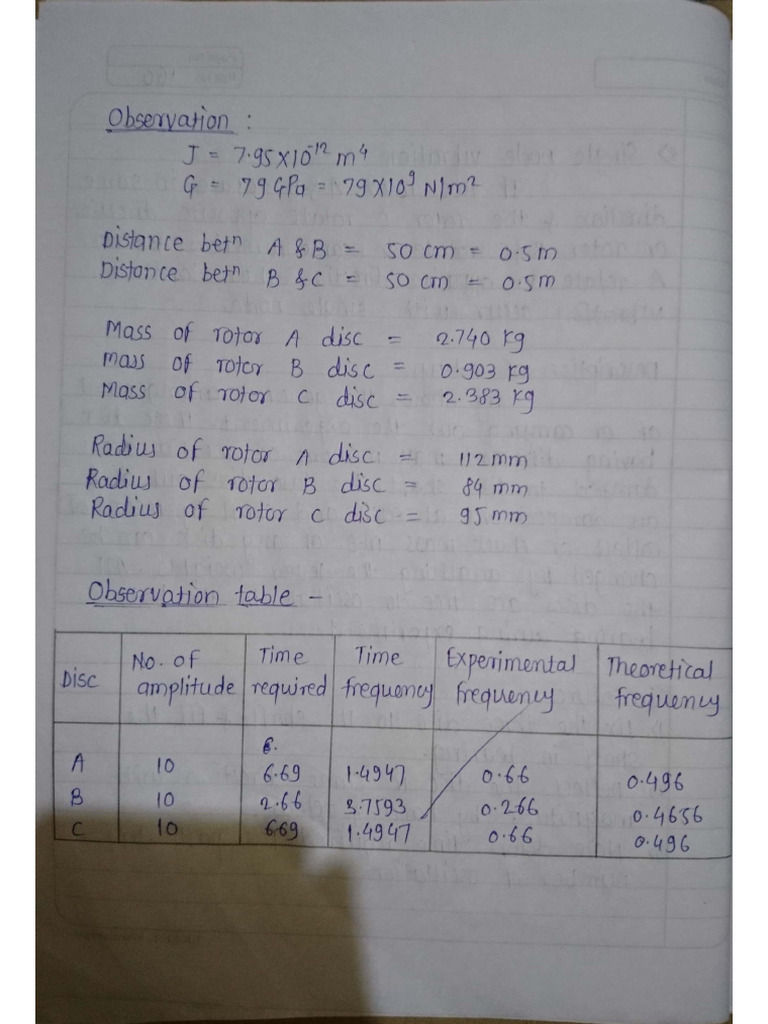 Observation :
J = 7.95X10⁻¹² m⁴
G = 79 GPa = 79 X10⁹ N/m²
Distance betⁿ A & B = 50 cm = 0.5m
Distance betⁿ B & C = 50 cm = 0.5m
Mass of rotor A disc = 2.740 kg
Mass of rotor B disc = 0.903 kg
Mass of rotor C disc = 2.383 kg
Radius of rotor A disc = 112mm
Radius of rotor B disc = 84 mm
Radius of rotor C disc = 95 mm
Observation table -
Disc No. of amplitude Time required Time frequency Experimental frequency Theoretical frequency
6.
A 10 6.69 1.4947 0.66 0.496
B 10 2.66 3.7593 0.266 0.4656
C 10 6.69 1.4947 0.66 0.496